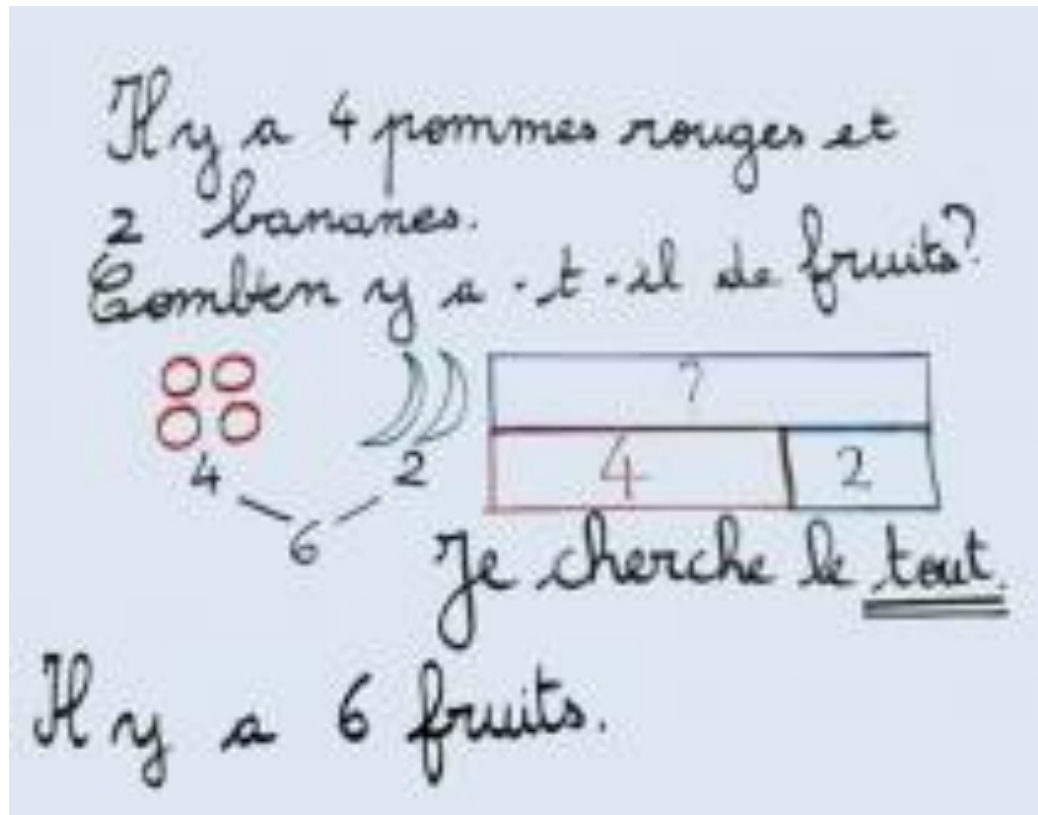 Il y a 4 pommes rouges et
2 bananes.
Combien y a-t-il de fruits?
?
4 2
4 2
6
Je cherche le tout.
Il y a 6 fruits.